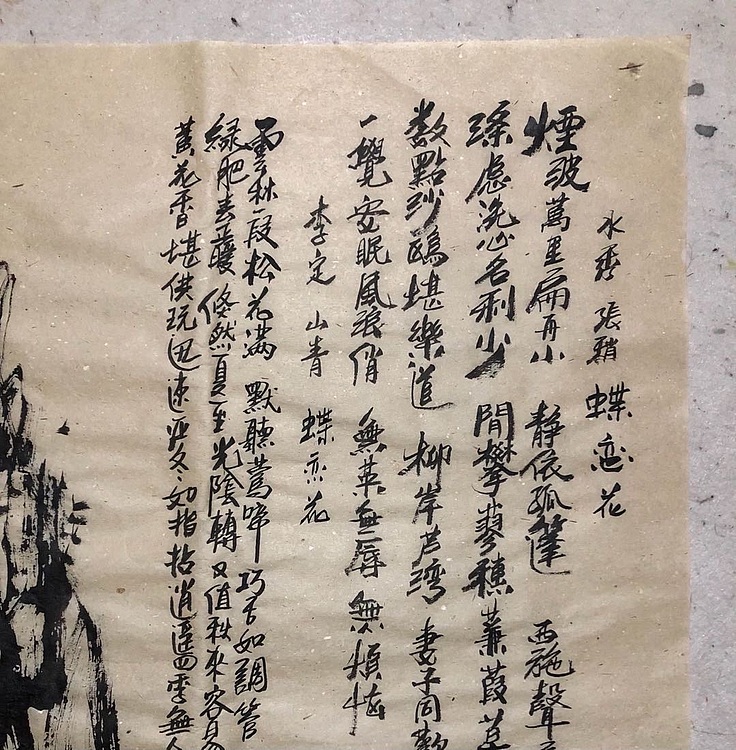 水秀 張稍 蝶恋花
煙波萬里扁舟小 静依孤篷 西施聲
滌慮洗心名利少 閒攀蓼穗蒹葭
数點沙鷗堪樂道 柳岸芦湾 妻子同歡
一覺安眠風浪俏 無荣無辱 無煩惱
李定 山青 蝶恋花
雲林一段松花满 默聽莺啼 巧舌如調管
緑肥春暖 倏然夏至光陰轉 又值秋来容易
黄花香堪供玩 迅速严冬如指拈 逍遥四季無人